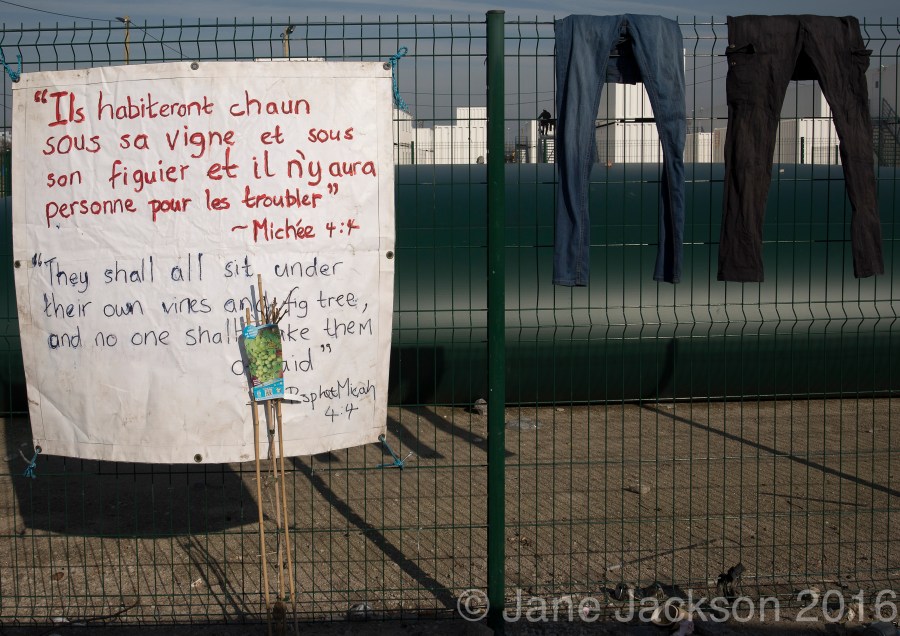 "Ils habiteront chaun
sous sa vigne et sous
son figuier et il n'y aura
personne pour les troubler"
~ Michée 4:4
"They shall all sit under
their own vines and fig tree,
and no one shall them
"
Micah
4:4
© Jane Jackson 2016